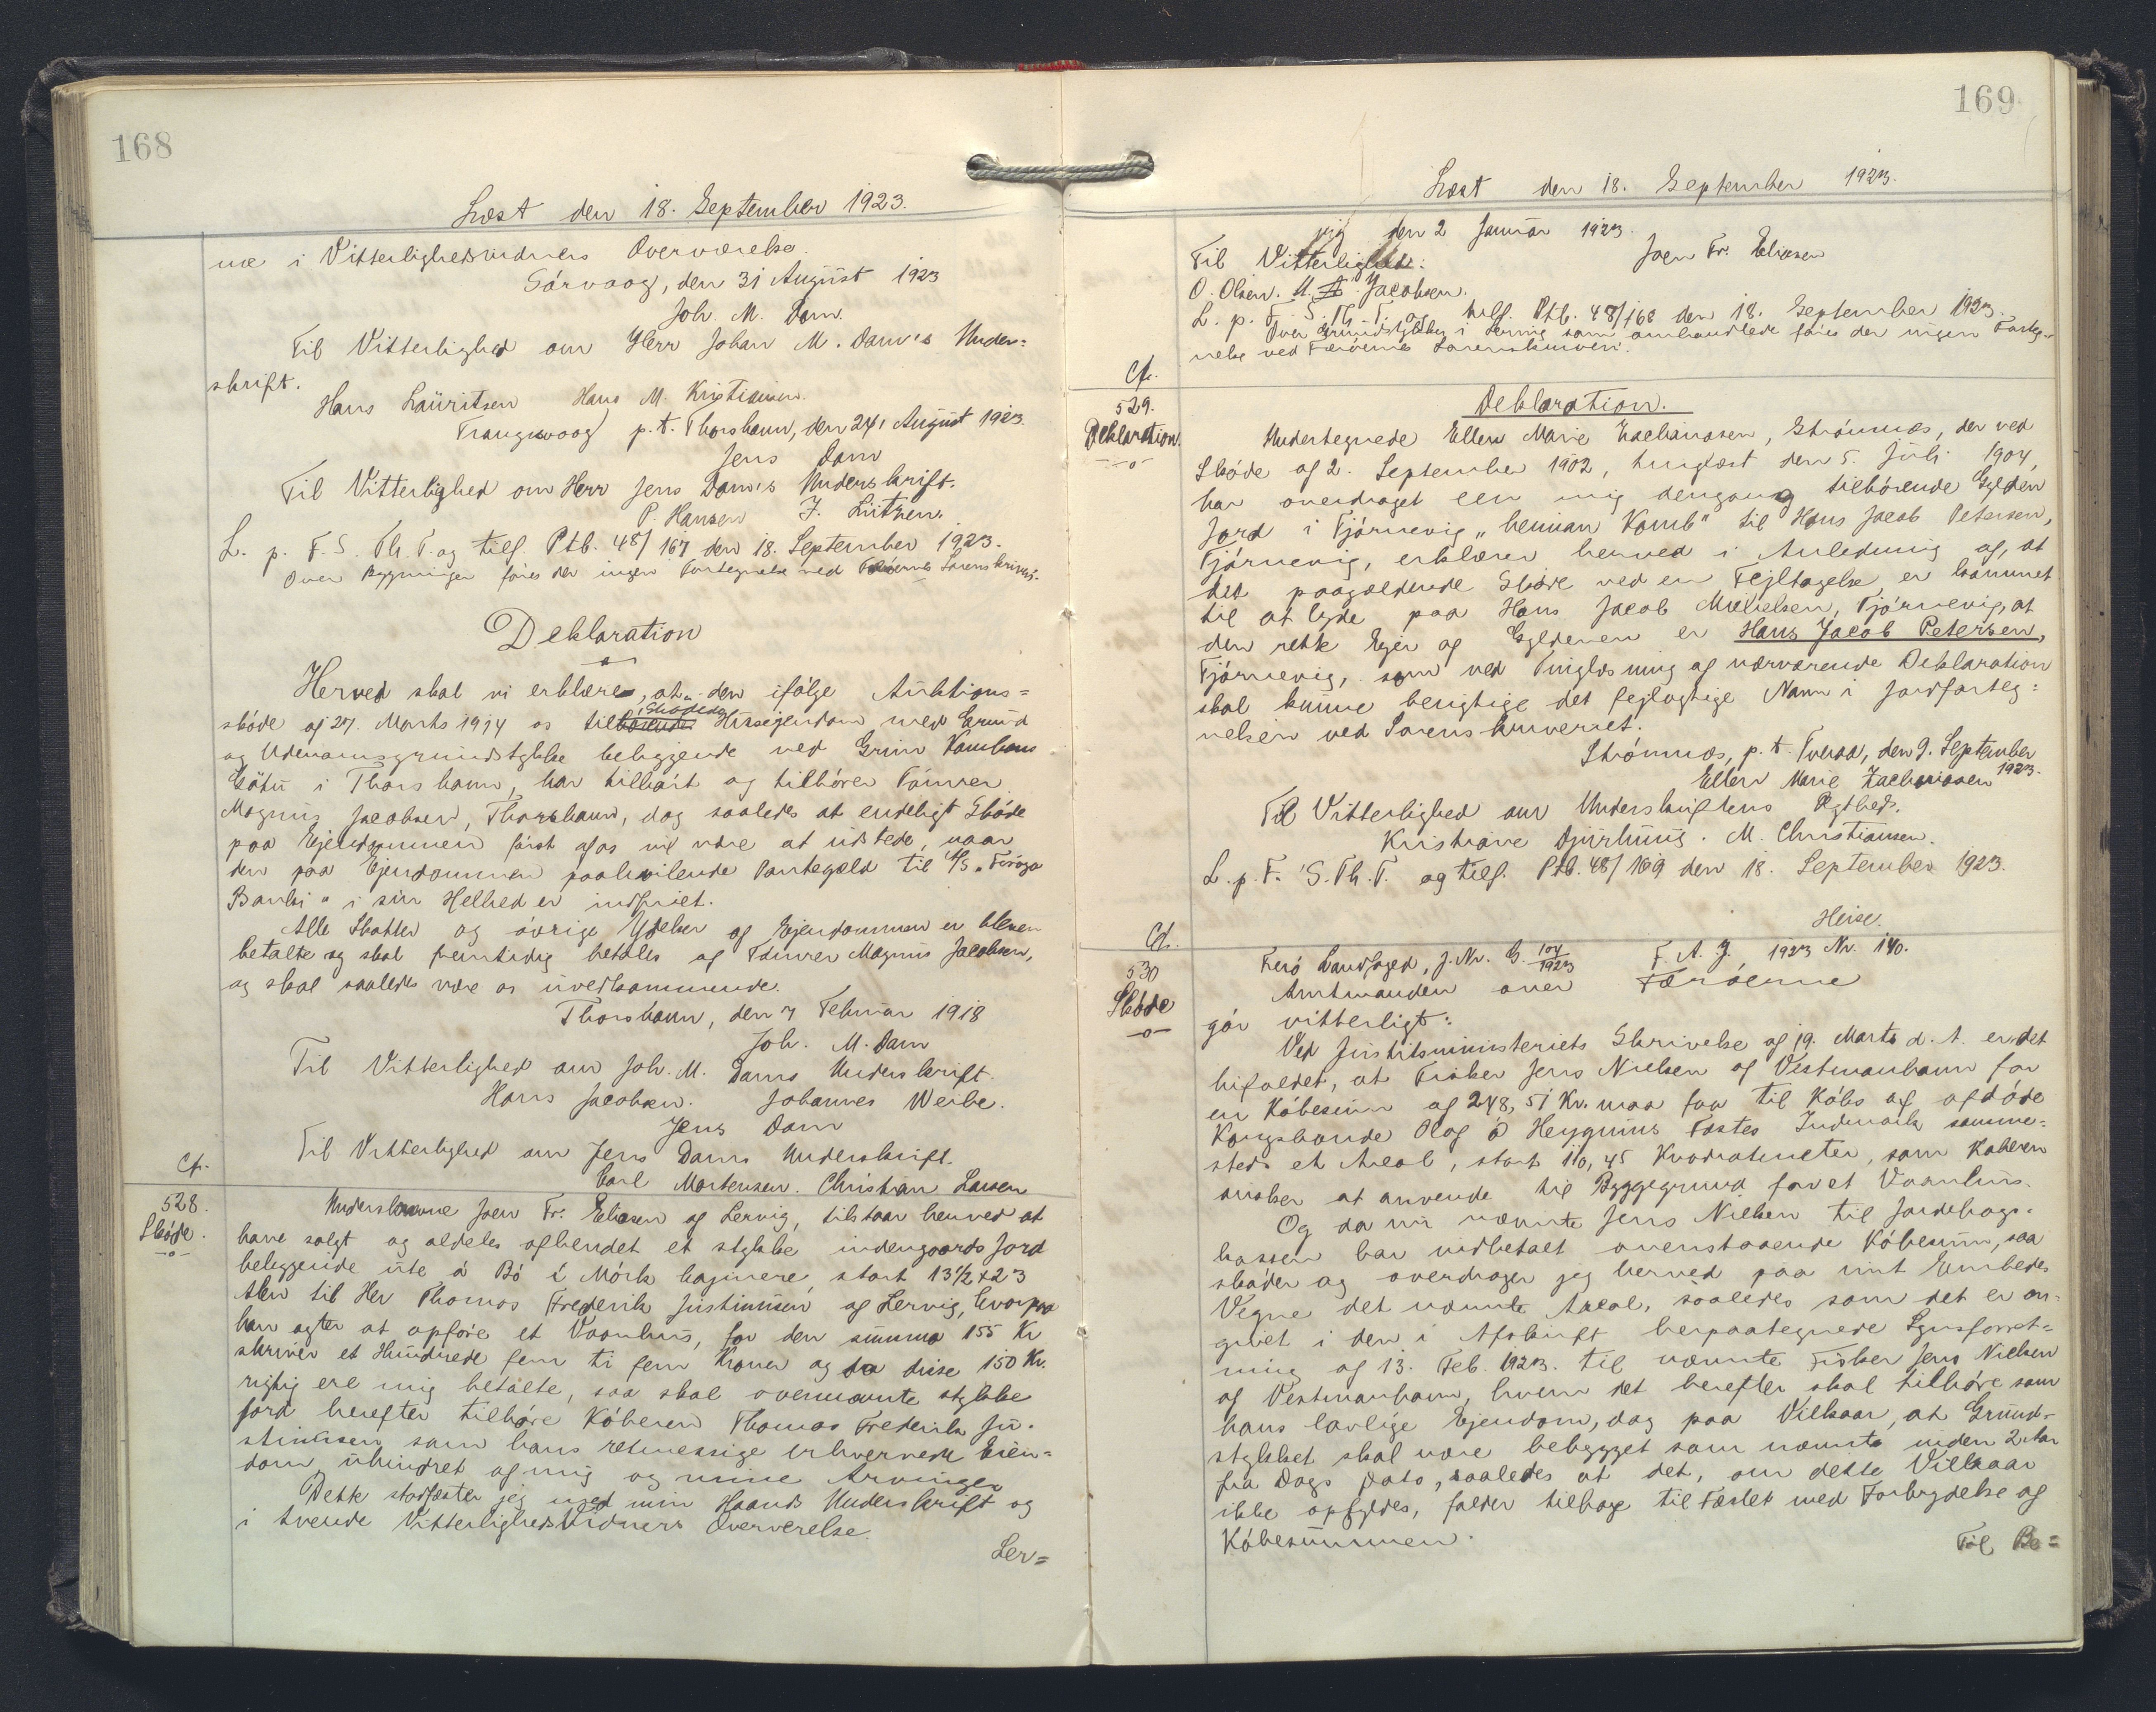 168
Læst den 18. September 1923.
ne i Vitterlighedsvidners Overværelse
Sórvaag, den 31 August 1923
Joh. M. Dam.
Til Vitterlighed om Herr Johan M. Dam's Under=
skrift.
Hans Lauritsen Hans M. Kristiansen.
Trangisvaag p.t. Thorshavn, den 24' August 1923.
Jens Dam
Til Vitterlighed om Herr Jens Dam's Underskrift.
P. Hansen J. Lützen.
L. p. F. S. Th. T. og tilf. Ptb. 48/167 den 18. September 1923.
Over Bygninger føres der ingen Fortegnelse ved Færøernes Sorenskriveri.
Deklaration
Herved skal vi erklære, at den ifølge Auktions=
skøde af 27. Marts 1914 os tilskødede Husejendom med Grund
og Udenomsgrundstykke beliggende ved Grim Kambans
Götu i Thorshavn, har tilhørt og tilhører Tømrer
Magnus Jacobsen, Thorshavn, dog saaledes at endeligt Skøde
paa Ejendommen først af os vil være at udstede, naar
den paa Ejendommen paahvilende Pantegæld til A/S „Føroya
Banki" i sin Helhed er indfriet.
Alle Skatter og øvrige Ydelser af Ejendommen er bleven
betalte og skal fremtidig betales af Tømrer Magnus Jacobsen,
og skal saaledes være os uvedkommende.
Thorshavn, den 7 Februar 1918
Joh. M. Dam
Til Vitterlighed om Joh. M. Dams Underskrift.
Hans Jacobsen. Johannes Weihe.
Jens Dam
Til Vitterlighed om Jens Dams Underskrift.
Carl Mortensen. Christian Larsen
Cf.
528.
Skøde.
Underskrevne Joen Fr. Eliasen af Lervig, tilstaar herved at
have solgt og aldeles afhendet et stykke indengaards Jord
beliggende úte á Bó í Mórk haginere, stort 13½ x 23
Alen til Her Thomas Frederik Justinusen af Lervig, hvorpaa
han agter at opføre et Vaanhus, for den summa 155 Kr
skriver et Hundrede fem ti fem Kroner og da disse 150 Kr.
rigtig ere mig betalte, saa skal overnævnte stykke
jord herefter tilhøre Køberen Thomas Frederik Ju=
stinusen som hans retmessige erhvervede Eien=
dom uhindret af mig og mine Arvinger
Dette stadfæster jeg med min Haands Underskrift og
i tvende VitterlighedsVidners Oververelse.
Ler=
169
Læst den 18. September 1923.
vig den 2 Januar 1923.
Til Vitterlighed: Joen Fr. Eliasen
O. Olsen. Jacobsen.
L. p. F. S. Th. T. og tilf. Ptb. 48/168 den 18. September 1923.
Over Grundstykker i Lervig som omhandlede føres der ingen Forteg=
nelse ved Færøernes Sorenskriveri.
Cf.
529.
Deklaration.
Deklaration.
Undertegnede Ellen Marie Zachariasen, Strømnæs, der ved
Skøde af 2. September 1902, tinglæst den 5. Juli 1904,
har overdraget een mig dengang tilhørende Gylden
Jord i Tjørnevig „heiman Kamb" til Hans Jacob Petersen,
Tjørnevig, erklærer herved i Anledning af, at
det paagældende Skøde ved en Fejltagelse er kommet
til at lyde paa Hans Jacob Mikkelsen, Tjørnevig, at
den rette Ejer af Gyldenen er Hans Jacob Petersen,
Tjørnevig, som ved Tinglæsning af nærværende Deklaration
skal kunne berigtige det fejlagtige Navn i Jordforteg=
nelsen ved Sorenskriveriet.
Strømnæs, p. t. Tveraa, den 9. September
1923.
Ellen Marie Zachariasen
Til Vitterlighed om Underskriftens Ægthed.
Kristiane Djurhuus. M. Christiansen.
L. p. F. S. Th. T. og tilf. Ptb. 48/169 den 18. September 1923.
Heise.
Cf.
530
Skøde
Færø Landfoged, J. Nr. G. 104/1923 F. A. J. 1923 Nr. 140.
Amtmanden over Færøerne
gør vitterligt:
Ved Justitsministeriets Skrivelse af 19. Marts d. A. er det
bifaldet, at Fisker Jens Nielsen af Vestmanhavn for
en Købesum af 248,51 Kr. maa faa til Købs af afdøde
Kongsbonde Olaf á Heygums Fæstes Indmark samme=
steds et Areal, stort 110,45 Kvadratmeter, som Køberen
ønsker at anvende til Byggegrund for et Vaanhus.
Og da nu nævnte Jens Nielsen til Jordebogs=
kassen har indbetalt ovenstaaende Købesum, saa
skøder og overdrager jeg herved paa mit Embedes
Vegne det nævnte Areal, saaledes som det er an=
givet i den i Afskrift herpaategnede Synsforret=
ning af 13. Feb. 1923. til nævnte Fisker Jens Nielsen
af Vestmanhavn, hvem det herefter skal tilhøre som
hans lovlige Ejendom, dog paa Vilkaar, at Grund=
stykket skal være bebygget som nævnt inden 2 Aar
fra Dags Dato, saaledes at det, om dette Vilkaar
ikke opfyldes, falder tilbage til Fæstet med Fortabelse af
Købesummen.
Til Be=